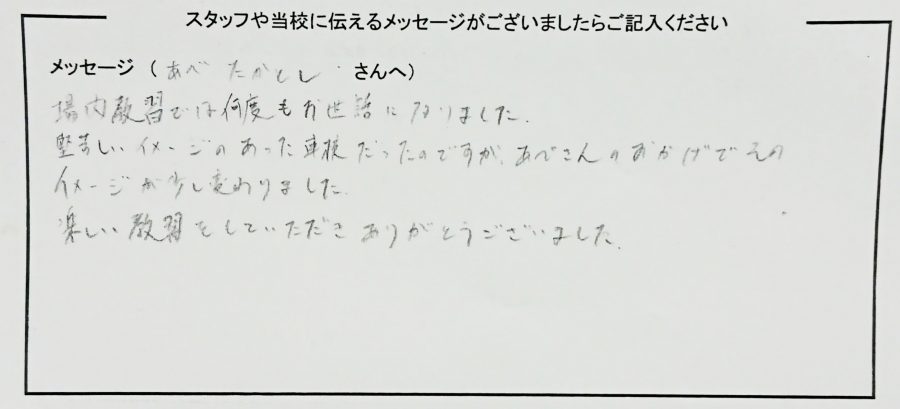 スタッフや当校に伝えるメッセージがございましたらご記入ください
メッセージ ( あべ たかとし さんへ)
場内教習では何度もお世話になりました.
堅苦しいイメージのあった車校だったのですが、あべさんのおかげでその
イメージが少し変わりました.
楽しい教習をしていただきありがとうございました.